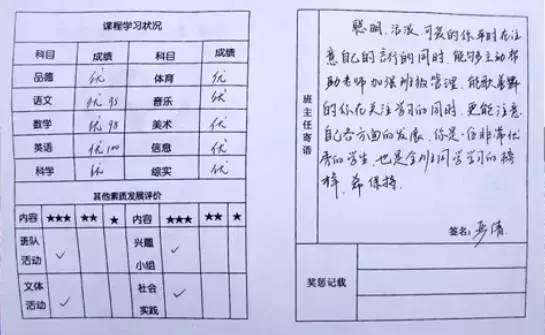 课程学习状况
科目 成绩 科目 成绩
品德 优 体育 优
语文 优 95 音乐 优
数学 优 98 美术 优
英语 优 100 信息 优
科学 优 综实 优
其他素质发展评价
内容 ★★★ ★★ ★ 内容 ★★★ ★★ ★
班队活动 ✓ 兴趣小组 ✓
文体活动 ✓ 社会实践 ✓
班主任寄语
聪明、活泼、可爱的你平时在注
意自己的言行的同时,能够主动帮
助老师加强班级管理,能歌善舞
的你在关注学习的同时,更能注意
自己各方面的发展,你是一位非常优
秀的学生,也是全班同学学习的榜
样,希保持。
签名:
奖惩记载